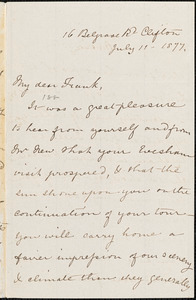 16 Belgrave Rd. Clifton
July 11. 1877.
My dear Frank,
It was a great pleasure
to hear from yourself and from
Mr New that your Evesham
visit prospered, & that the
sun shone upon you on the
continuation of your tour
you will carry home a
fairer impression of our scenery
& climate than they generally